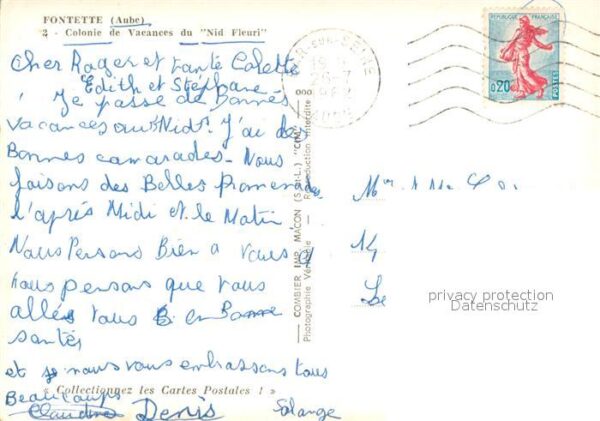 FONTETTE (Aube)
2 - Colonie de Vacances du "Nid Fleuri"
Cher Roger et tante Colette
Edith et Stéphane
Je passe de Bonnes
vacances au "Nid". J'ai des
Bonnes camarades. Nous
faisons des Belles Promenades
l'après Midi et le Matin
Nous Pensons Bien a vous
nous pensons que vous
allés tous en Bonne
santés
et nous vous embrassons tous
Beaucoups
« Collectionnez les Cartes Postales ! »
Claudine Denis Solange
COMBIER IMP. MACON (S.-et-L.) "CIM"
Photographie Véritable - Reproduction Interdite
SUR-SEINE
REPUBLIQUE FRANÇAISE
0,20
POSTES
14
Le
privacy protection
Datenschutz